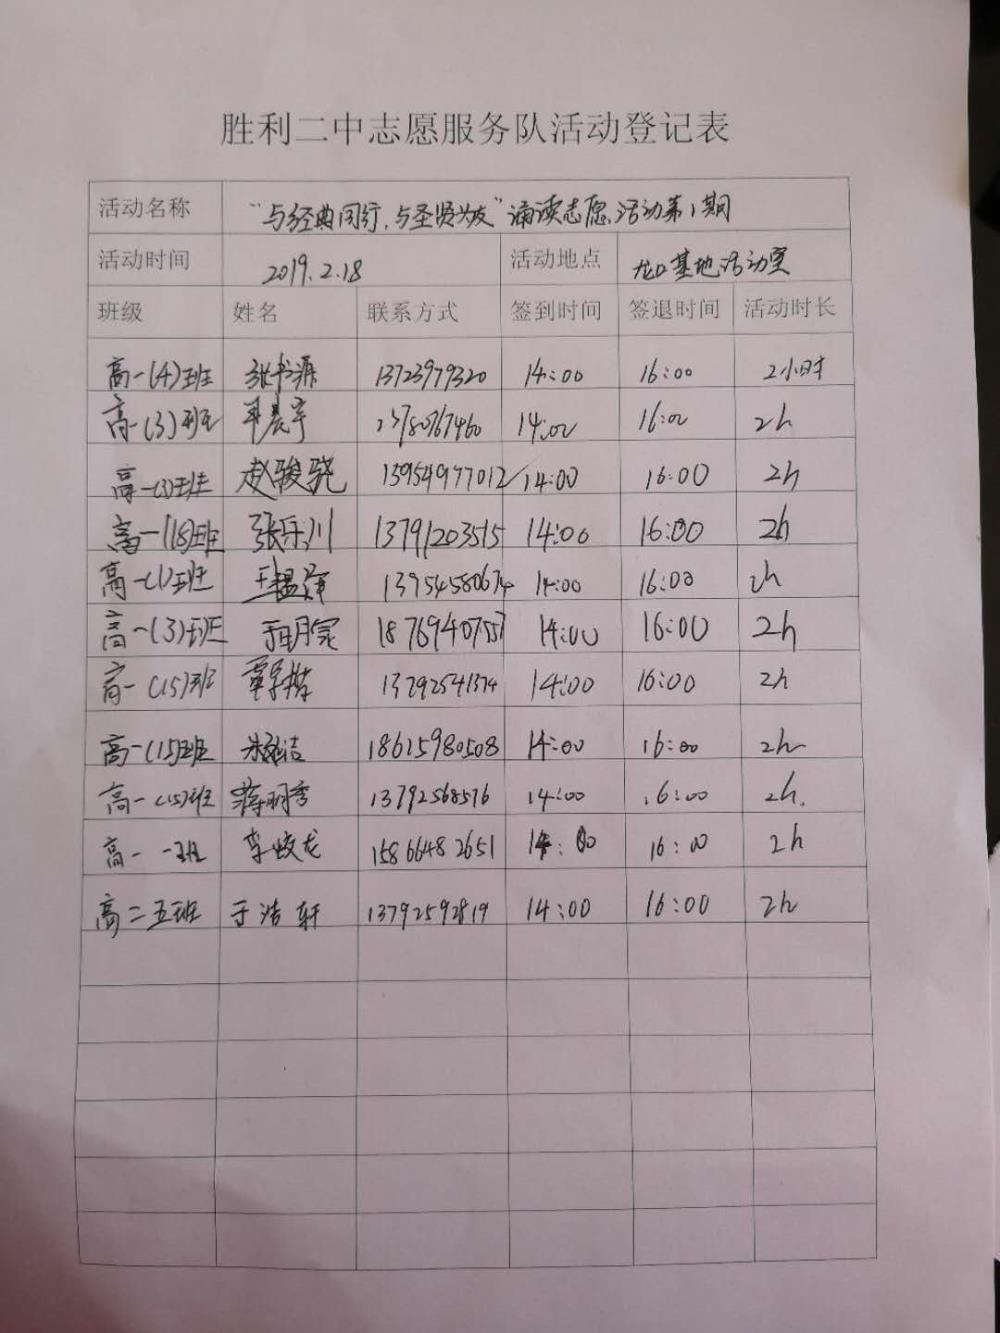 胜利二中志愿服务队活动登记表
活动名称 “与经典同行,与圣贤为友”诵读志愿活动第1期
活动时间 2019.2.18 活动地点 龙口基地活动室
班级 姓名 联系方式 签到时间 签退时间 活动时长
高一(4)班 张书源 13723979320 14:00 16:00 2小时
高一(3)班 14:00 16:00 2h
高一(3)班 赵骏骁 13954977012 14:00 16:00 2h
高一(18)班 张乐川 13791203515 14:00 16:00 2h
高一(1)班 13954580674 14:00 16:00 2h
高一(3)班 18769407557 14:00 16:00 2h
高一(15)班 13792541374 14:00 16:00 2h
高一(15)班 18615980508 14:00 16:00 2h
高一(15)班 蒋羽秀 13792568576 14:00 16:00 2h.
高一 一班 李蛟龙 15866482651 14:00 16:00 2h
高二五班 于浩轩 13792592819 14:00 16:00 2h